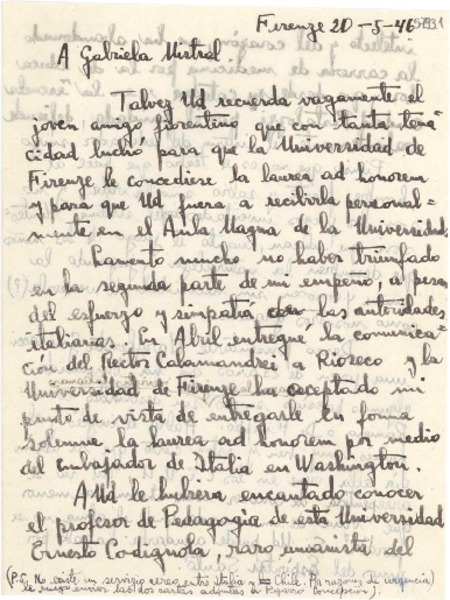 Firenze 20-5-46
A Gabriela Mistral
Talvez Ud recuerda vagamente el
joven amigo fiorentino que con tanta tena=
cidad luchó para que la Universidad de
Firenze le concediese la laurea ad honorem
y para que Ud fuera a recibirla personal=
mente en el Aula Magna de la Universidad.
Lamento mucho no haber triunfado
en la segunda parte de mi empeño, a pesar
del esfuerzo y simpatia de las autoridades
italianas. En Abril entregué la comunica=
ción del Rector Calamandrei a Rioseco y la
Universidad de Firenze ha aceptado mi
punto de vista de entregarle en forma
solemne la laurea ad honorem por medio
del embajador de Italia en Washington.
A Ud le hubiera encantado conocer
el profesor de Pedagogia de esta Universidad
Ernesto Codignola, raro umanista del
(P.S. No existe un servizio aereo entre Italia y Chile. Por razones de urgencia
le ruego enviar las dos cartas adjuntas a Pizarro Concepción).